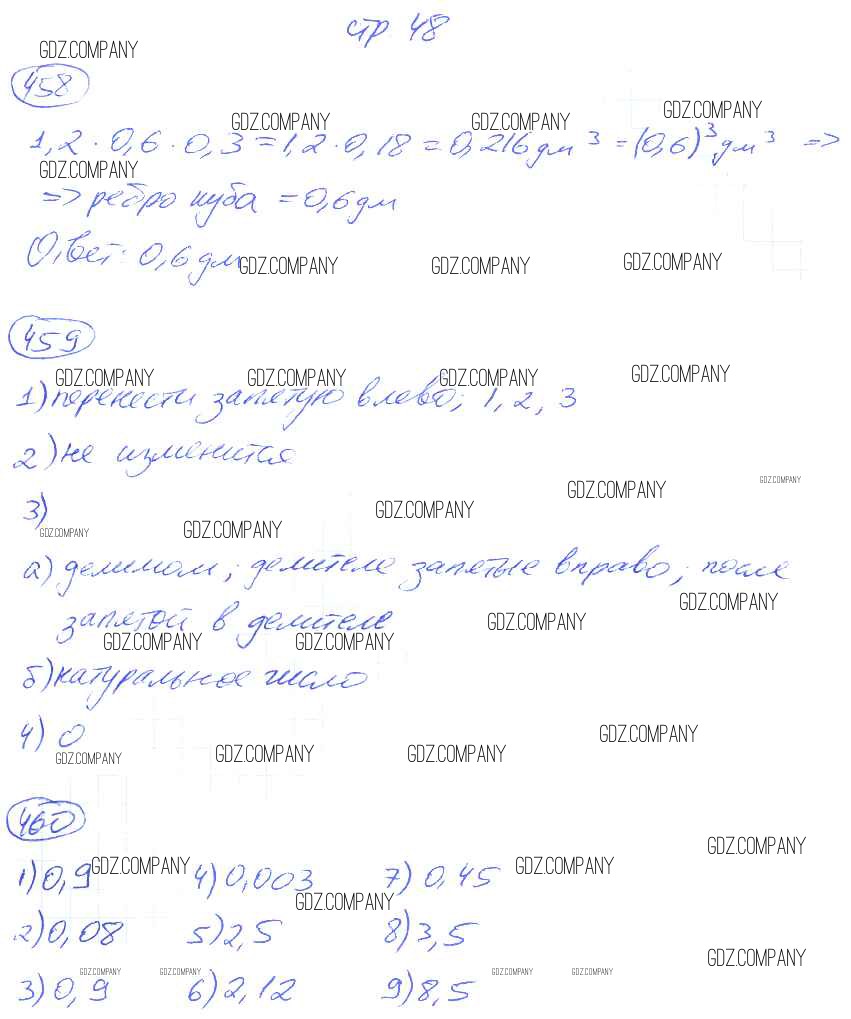 стр 48
GDZ.COMPANY
458
GDZ.COMPANY GDZ.COMPANY GDZ.COMPANY
1,2 · 0,6 · 0,3 = 1,2 · 0,18 = 0,216 дм³ = (0,6)³ дм³ =>
GDZ.COMPANY
=> ребро куба = 0,6 дм
Ответ: 0,6 дм
GDZ.COMPANY GDZ.COMPANY GDZ.COMPANY
459
GDZ.COMPANY GDZ.COMPANY GDZ.COMPANY GDZ.COMPANY
1) перенести запятую влево; 1, 2, 3
2) не изменится
GDZ.COMPANY GDZ.COMPANY
3)
GDZ.COMPANY GDZ.COMPANY GDZ.COMPANY
а) делимом; делителе запятые вправо; после
запятой в делителе
GDZ.COMPANY GDZ.COMPANY GDZ.COMPANY GDZ.COMPANY
б) натуральное число
4) 0
GDZ.COMPANY GDZ.COMPANY GDZ.COMPANY GDZ.COMPANY
460
GDZ.COMPANY
1) 0,9 4) 0,003 7) 0,45
GDZ.COMPANY GDZ.COMPANY GDZ.COMPANY
2) 0,08 5) 2,5 8) 3,5
GDZ.COMPANY
GDZ.COMPANY GDZ.COMPANY GDZ.COMPANY GDZ.COMPANY
3) 0,9 6) 2,12 9) 8,5